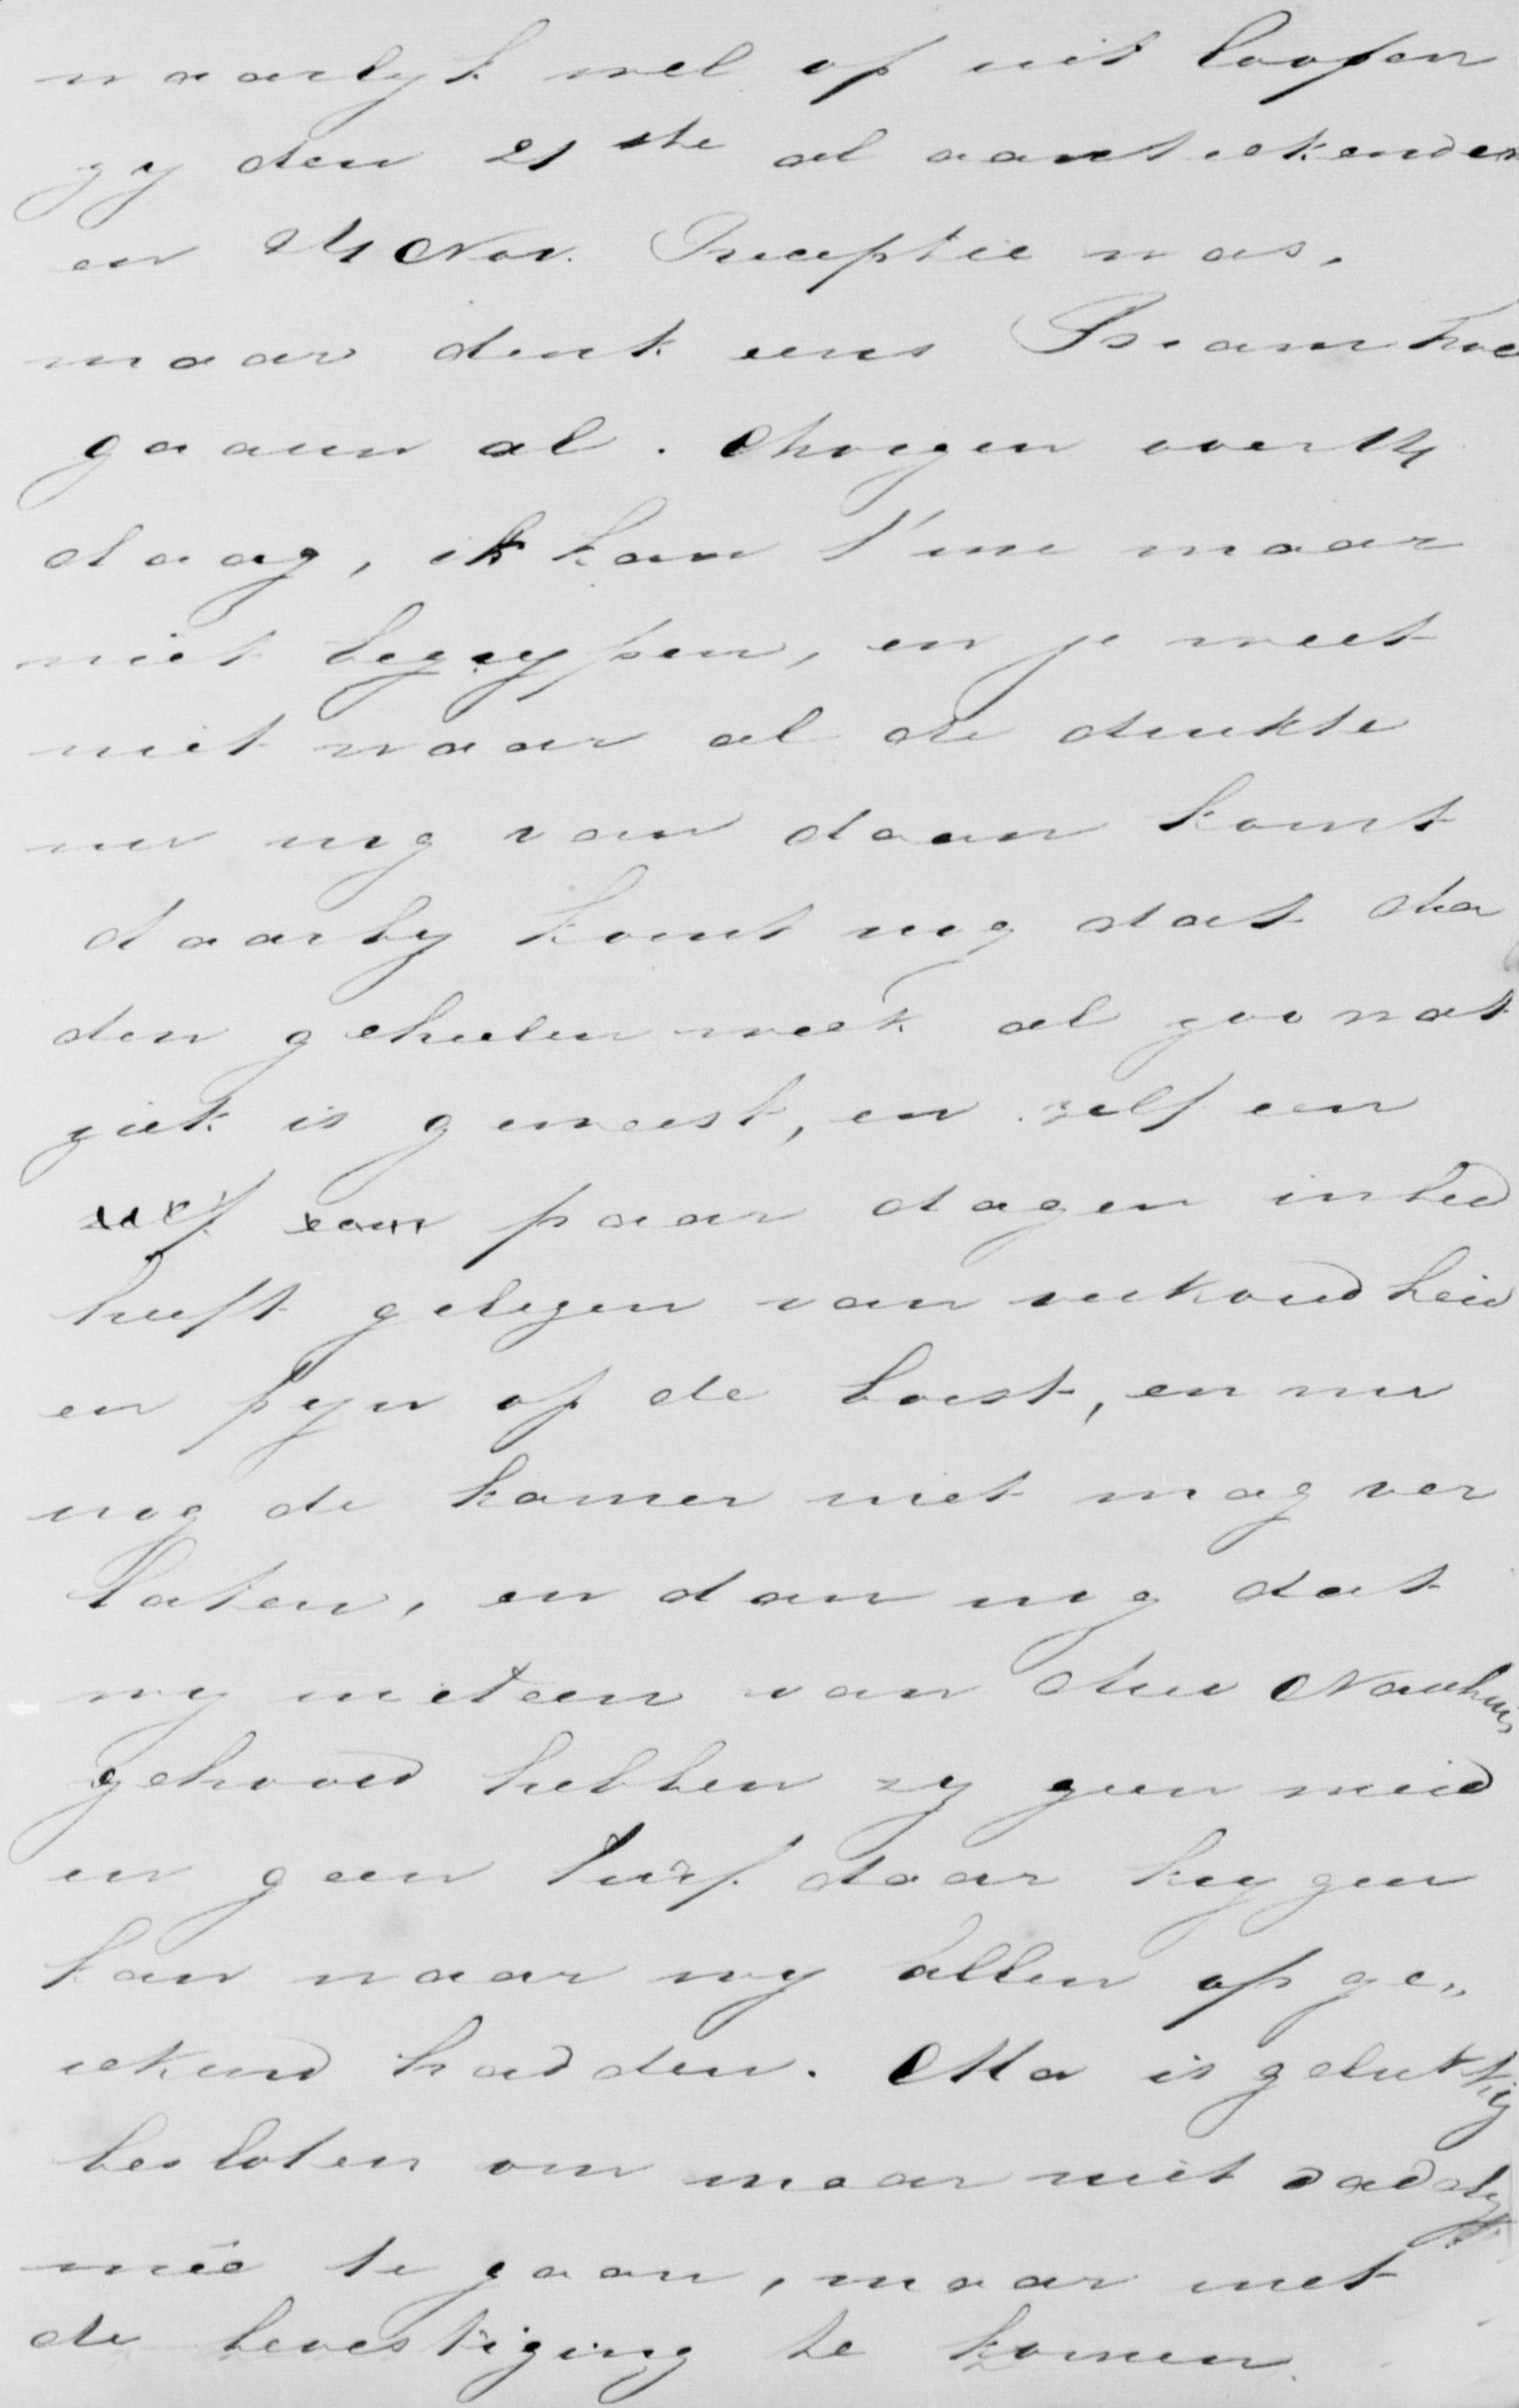 waarlyk wel op uit loopen
gy den 21ste al aanteekenden
en 24 Nov. Receptie was.
maar denk eens Bram hoe
gaauw al. Morgen over 14
daag, ik kan 't me maar
niet begrypen, en je weet
niet waar al de drukte
nu nog van daan komt
daarby komt nog dat Ma
den geheelen week al zoo wat
ziek is geweest, en zelf een
zelf een paar dagen in bed
heeft gelegen van verkoudheid
en pyn op de borst, en nu
nog de kamer niet mag ver
laten, en dan nog dat
wy meteen van
gehoord hebben zy geen meid
en geen turf daar krygen
kan waar wy allen op ge„
rekend hadden. Ma is gelukkig
besloten om maar niet dadelyk
meê te gaan, maar met
de bevestiging te komen.